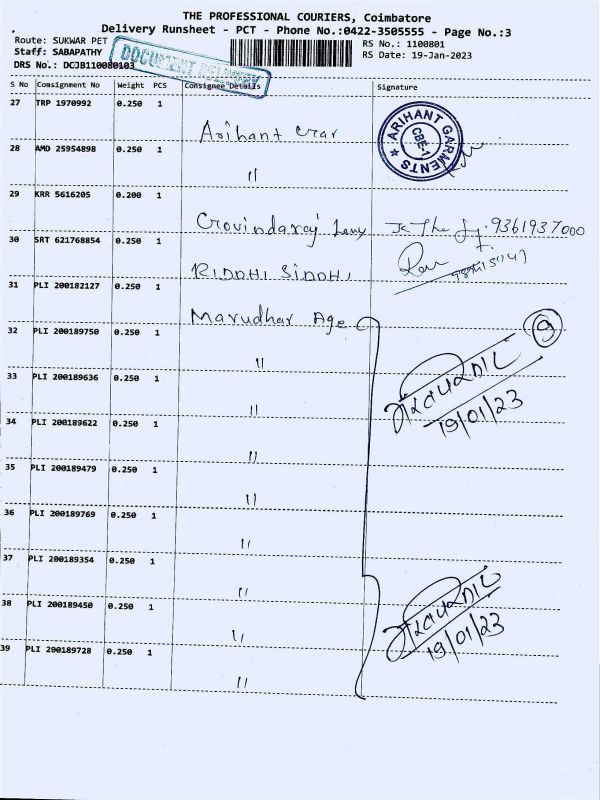 THE PROFESSIONAL COURIERS, Coimbatore
Delivery Runsheet - PCT - Phone No.:0422-3505555 - Page No.:3
Route: SUKWAR PET
RS No.: 1100801
Staff: SABAPATHY
RS Date: 19-Jan-2023
DRS No.: DCJB110080103
DOCUMENT DELIVERY
S No Consignment No Weight PCS Consignee Details Signature
27 TRP 1970992 0.250 1 Arihant Gar
ARIHANT GARMENTS
CBE-1
28 AMD 25954898 0.250 1 "
29 KRR 5616205 0.200 1 Govindaraj 9361937000
30 SRT 621768854 0.250 1 RIDDHI SIDDHI
31 PLI 200182127 0.250 1 Marudhar Age
9
32 PLI 200189750 0.250 1 "
33 PLI 200189636 0.250 1 "
19/01/23
34 PLI 200189622 0.250 1 "
35 PLI 200189479 0.250 1 "
36 PLI 200189769 0.250 1 "
37 PLI 200189354 0.250 1 "
38 PLI 200189450 0.250 1 "
19/01/23
39 PLI 200189728 0.250 1 "